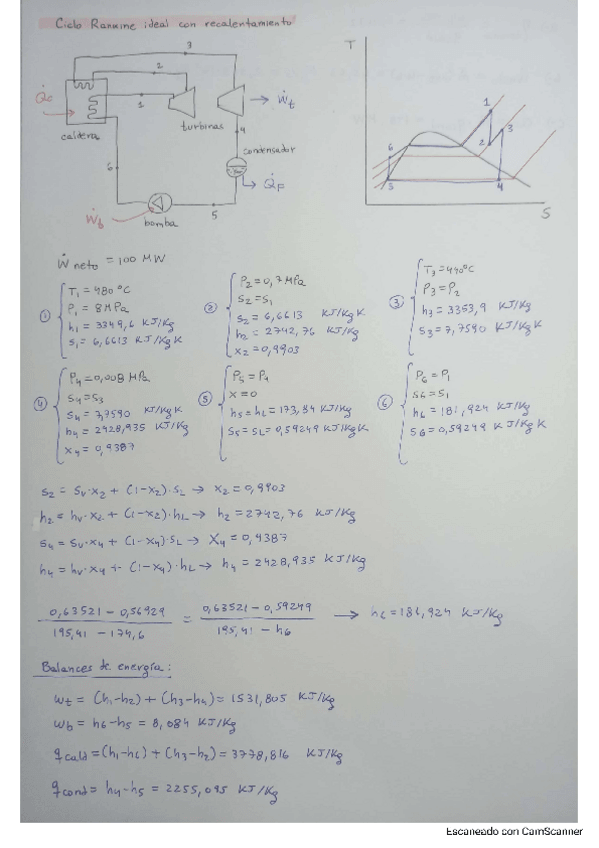 Ciclo Rankine ideal con recalentamiento
3
2
Q̇c
1
caldera
turbinas
Ẇt
4
condensador
6
Q̇p
Ẇb
bomba
5
T
1
2
3
6
5
4
S
Ẇneto = 100 MW
① T1 = 480 °C
P1 = 8 MPa
h1 = 3349,6 KJ/Kg
s1 = 6,6613 KJ/Kg K
② P2 = 0,7 MPa
s2 = s1
s2 = 6,6613 KJ/Kg K
h2 = 2742,76 KJ/Kg
x2 = 0,9903
③ T3 = 440°C
P3 = P2
h3 = 3353,9 KJ/Kg
s3 = 7,7590 KJ/Kg K
④ P4 = 0,008 MPa
s4 = s3
s4 = 7,7590 KJ/Kg K
h4 = 2428,935 KJ/Kg
x4 = 0,9387
⑤ P5 = P4
x = 0
h5 = hL = 173,84 KJ/Kg
s5 = sL = 0,59249 KJ/Kg K
⑥ P6 = P1
s6 = s1
h6 = 181,924 KJ/Kg
s6 = 0,59249 KJ/Kg K
s2 = sv·x2 + (1-x2)·sL → x2 = 0,9903
h2 = hv·x2 + (1-x2)·hL → h2 = 2742,76 KJ/Kg
s4 = sv·x4 + (1-x4)·sL → x4 = 0,9387
h4 = hv·x4 + (1-x4)·hL → h4 = 2428,935 KJ/Kg
0,63521 - 0,56929 / 195,41 - 174,6 = 0,63521 - 0,59249 / 195,41 - h6 → h6 = 181,924 KJ/Kg
Balances de energía:
wt = (h1-h2) + (h3-h4) = 1531,805 KJ/Kg
wb = h6-h5 = 8,084 KJ/Kg
qcald = (h1-h6) + (h3-h2) = 3778,816 KJ/Kg
qcond = h4-h5 = 2255,095 KJ/Kg
Escaneado con CamScanner